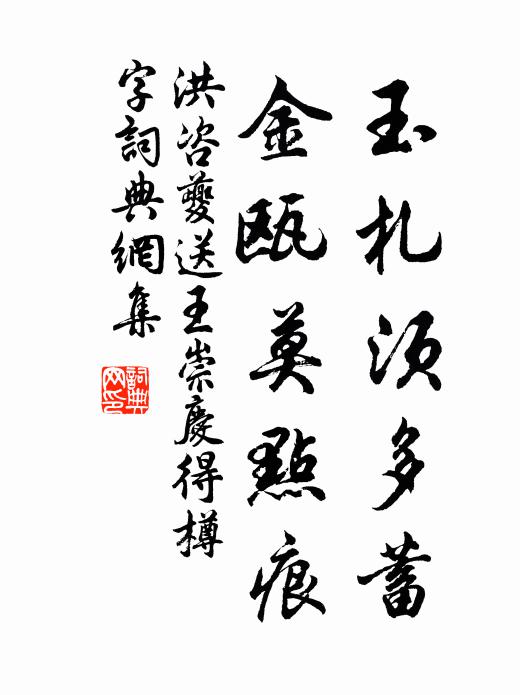 玉札須多蓄
金甌莫點痕
洪咨夔送王崇慶得樽
字詞典網集
詞典網印